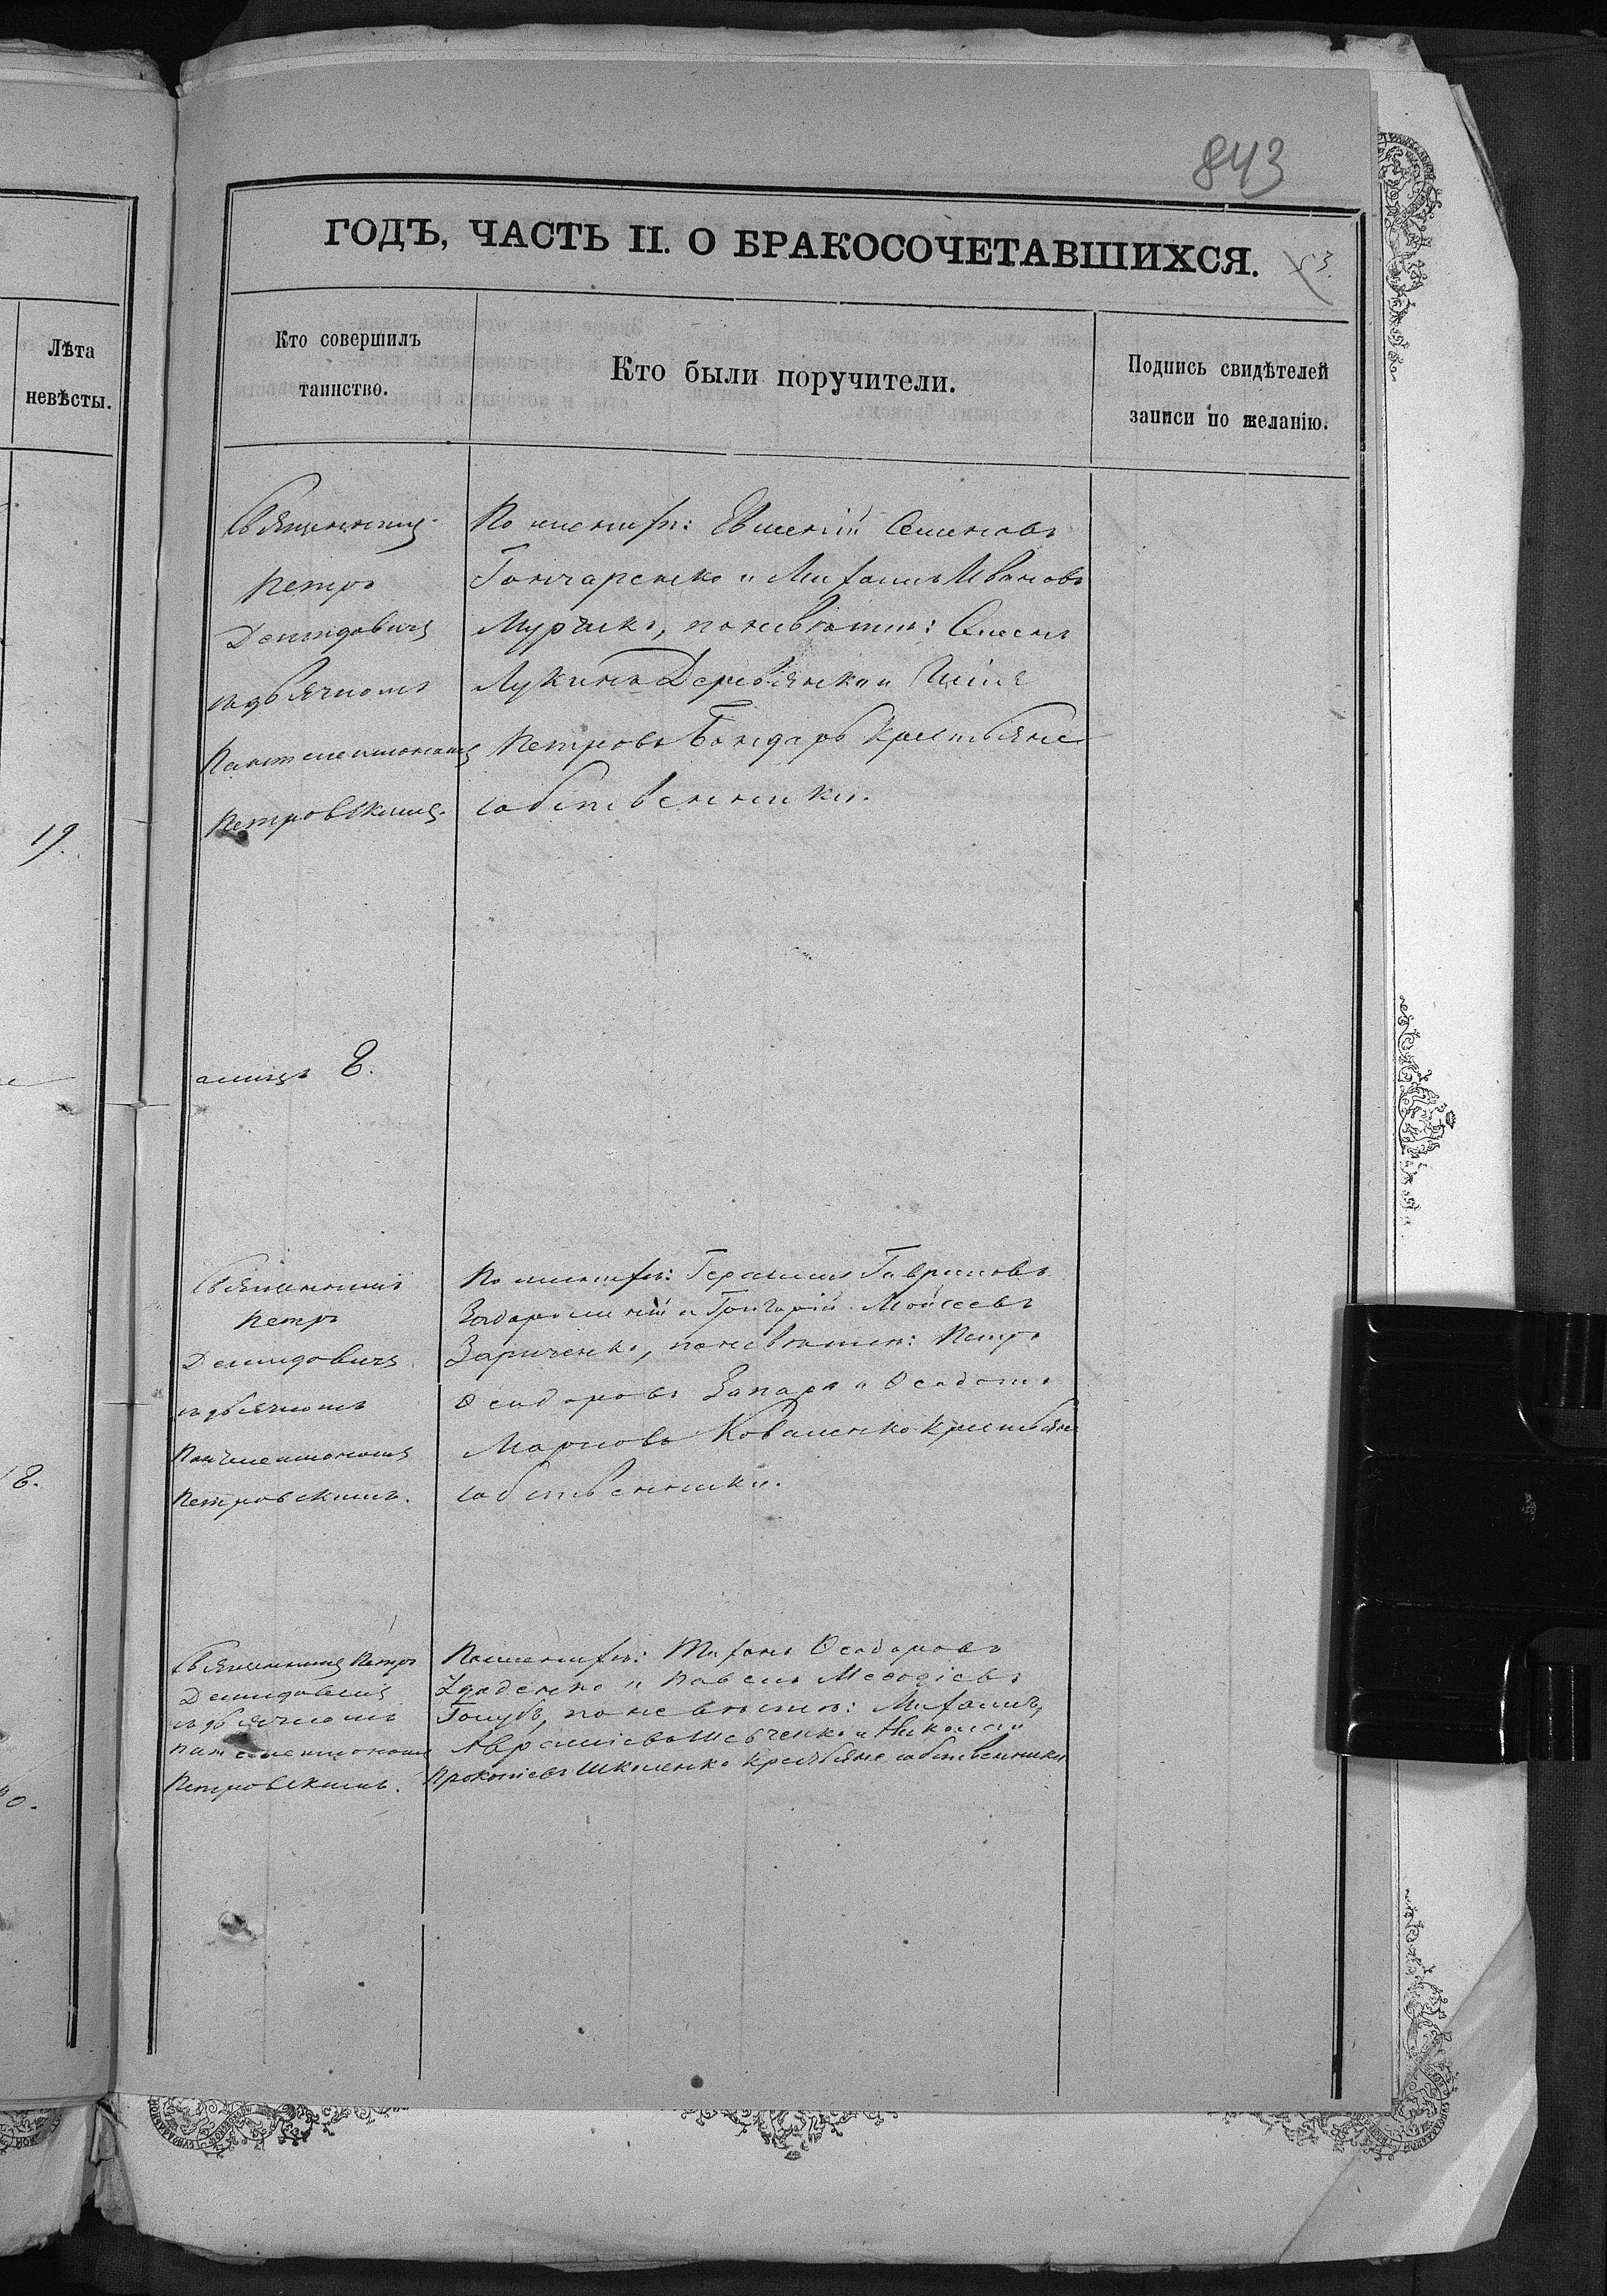 843
ГОДЪ, ЧАСТЬ II. О БРАКОСОЧЕТАВШИХСЯ.
53.
Лѣта
невѣсты.
Кто совершилъ
таинство.
Кто были поручители.
Подпись свидѣтелей
записи по желанію.
19.
18.
Священникъ
Петръ
Демидовичъ
съ дьячкомъ
Пантелеимономъ
Петровскимъ.
По женихѣ: Евменій Семеновъ
Гончаренко и Михаилъ Ивановъ
по невѣстѣ: Симеонъ
Лукинъ Деревянко и Илія
Петровъ Бондарь крестьяне
собственники.
8.
Священникъ
Петръ
Демидовичъ
съ дьячкомъ
Пантелеимономъ
Петровскимъ.
По женихѣ: Герасимъ Гавриловъ
и Григорій Моисеевъ
Зариченко, по невѣстѣ: Петръ
Ѳеодоровъ Запара и Ѳеодотъ
Марковъ Коваленко крестьяне
собственники.
Священникъ Петръ
Демидовичъ
съ дьячкомъ
Пантелеимономъ
Петровскимъ.
По женихѣ: Тихонъ Ѳеодоровъ
и Павелъ Меѳодіевъ
Голубъ, по невѣстѣ: Михаилъ
Аврамiевъ Шевченко и Николай
Прокопіевъ Школенко крестьяне собственники